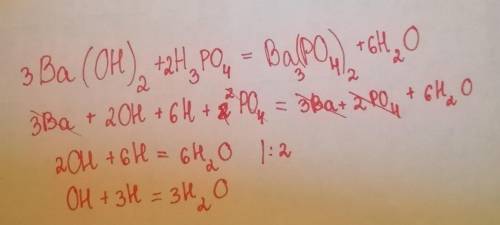 3Ba(OH)₂ + 2H₃PO₄ = Ba₃(PO₄)₂ + 6H₂O
3Ba + 2OH + 6H + 2PO₄ = 3Ba + 2PO₄ + 6H₂O
2OH + 6H = 6H₂O |:2
OH + 3H = 3H₂O